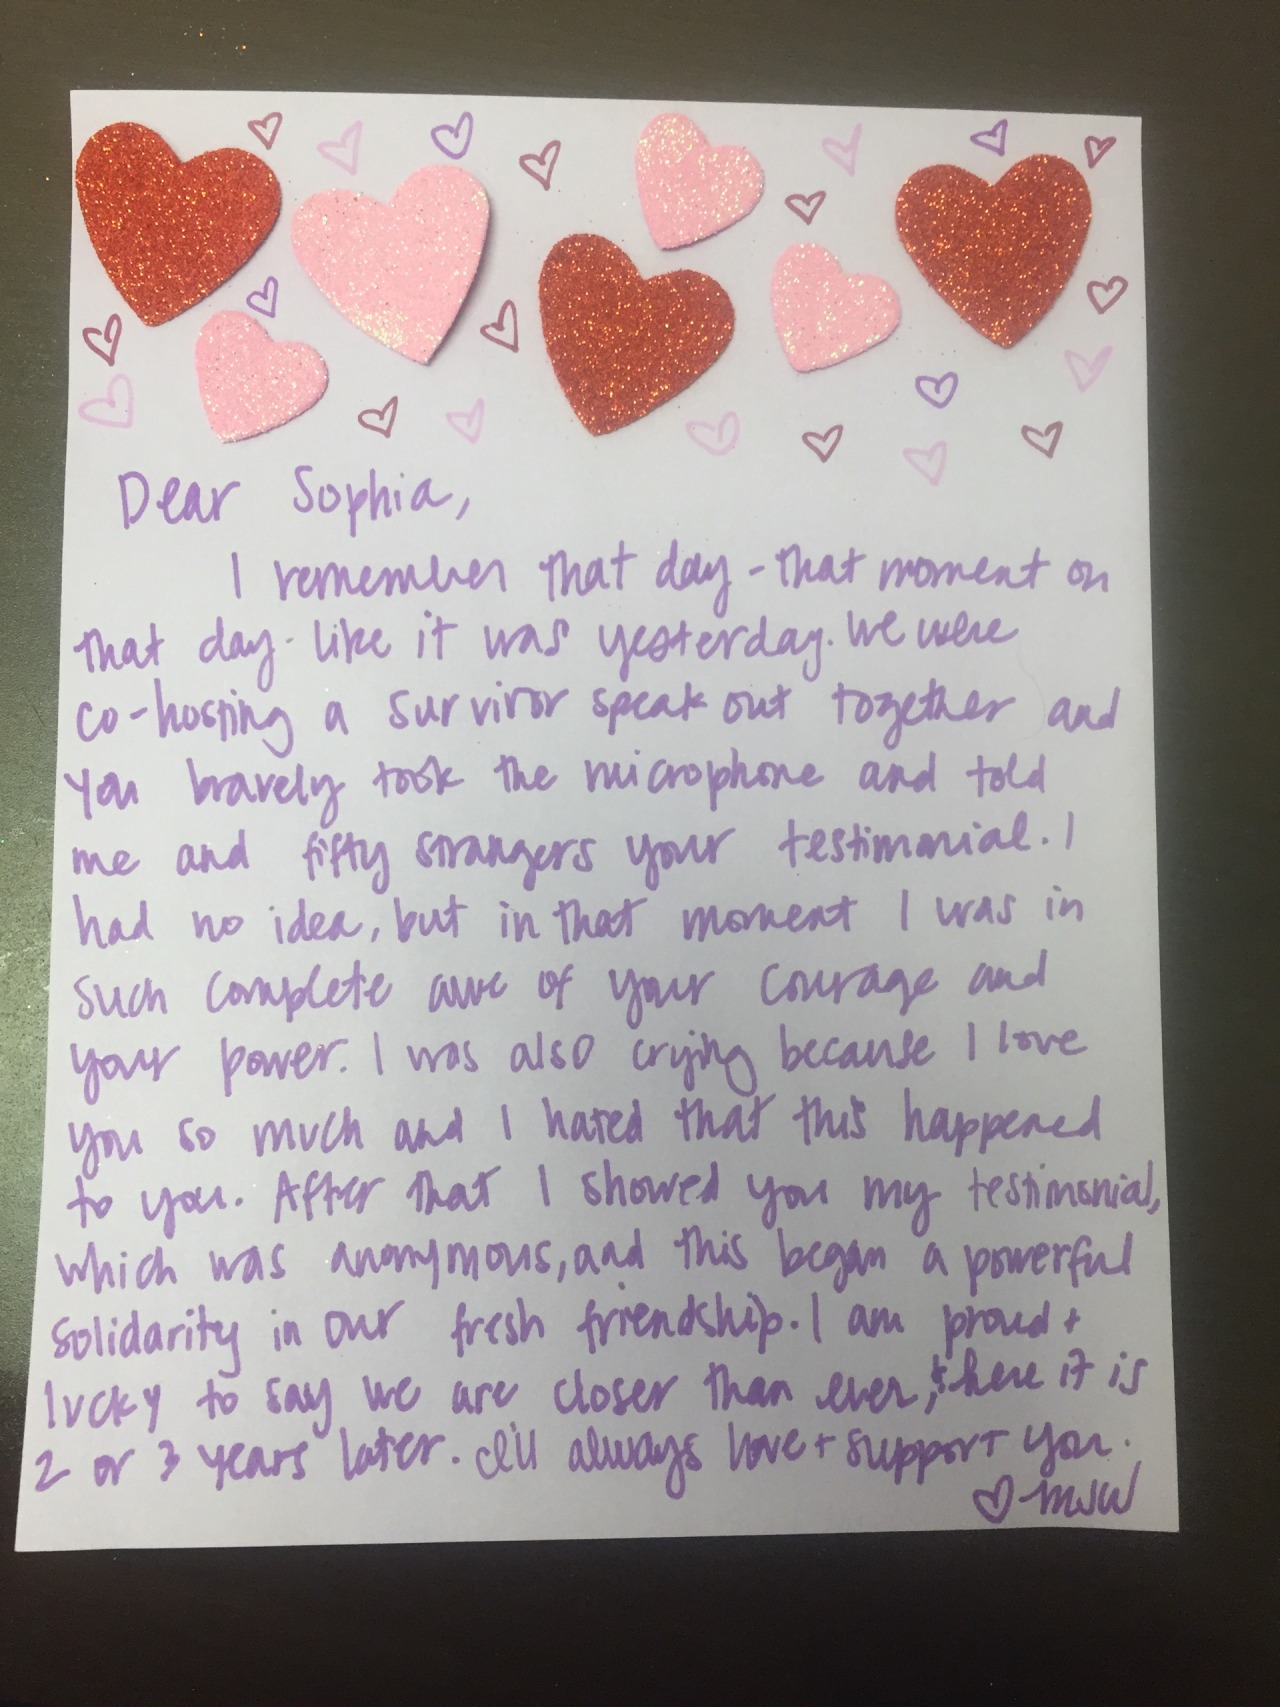 Dear Sophia,
I remember that day - that moment on
that day - like it was yesterday. We were
co-hosting a survivor speak out together and
you bravely took the microphone and told
me and fifty strangers your testimonial. I
had no idea, but in that moment I was in
such complete awe of your courage and
your power. I was also crying because I love
you so much and I hated that this happened
to you. After that I showed you my testimonial,
which was anonymous, and this began a powerful
solidarity in our fresh friendship. I am proud +
lucky to say we are closer than ever, & here it is
2 or 3 years later. I'll always love + support you.
♡ - MSW